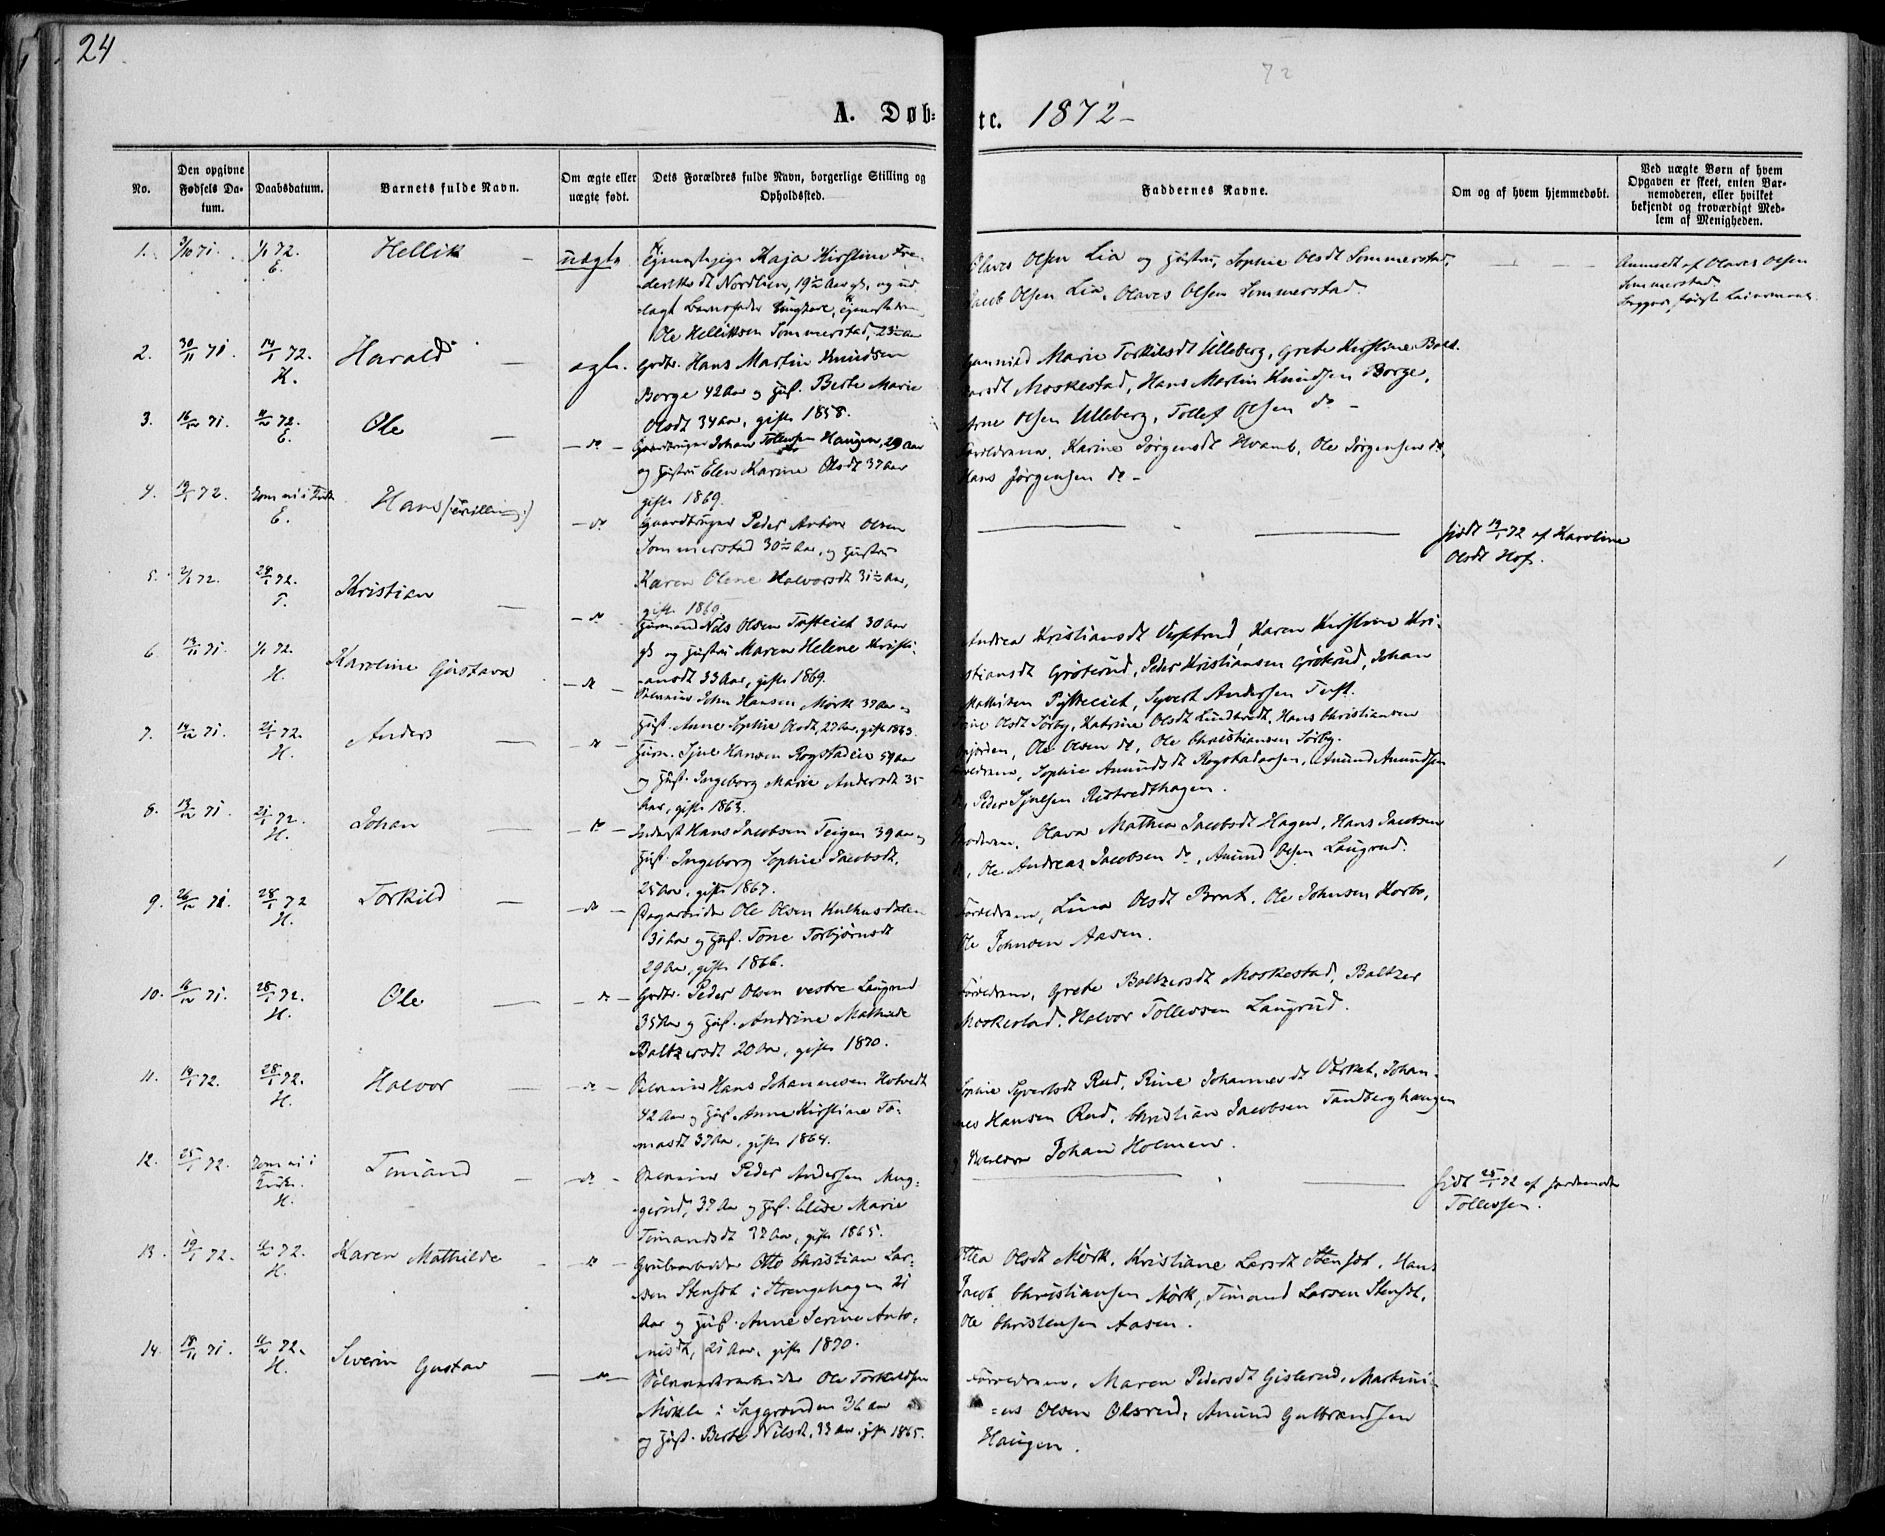 24
72
A. Døb-
te. 1872
No.
Den opgivne Fødsels Datum.
Daabsdatum.
Barnets fulde Navn.
Om ægte eller uægte født.
Dets Forældres fulde Navn, borgerlige Stilling og Opholdssted.
Faddernes Navne.
Om og af hvem hjemmedøbt.
Ved uægte Børn af hvem Opgaven er skeet, enten Barnemoderen, eller hvilket bekjendt og troværdigt Medlem af Menigheden.
1. 3/10 71. 1/1 72. E. Hellik uægte
Kaja Kirstine Fre-
deriksdt Nordlien, 19½ Aar gl. og ud
lagt Barnefader Ungkarl,
Ole Helliksen Sommerstad, 23½ Aar
Olaves Olsen Lia og Hustru, Sophie Olsdt Sommerstad,
Jacob Olsen Lia, Olaves Olsen Sommerstad.
Anmeldt af Olaves Olsen
Sommerstad
2. 30/11 71. 14/1 72. K. Harald ægte.
Gdbr. Hans Martin Knudsen
Borge 42 Aar og Hust. Berte Marie
Olsdt 34 Aar, gifte 1858.
Marie Torkilsdt Ulleberg, Grete Kirstine
Moskestad, Hans Martin Knudsen Borge,
Arne Olsen Ulleberg, Tollef Olsen do
3. 16/12 71. 72. E. Ole do
Gaardbruger Johan Tollefsen Haugen, 29 Aar
og Hustru Elen Karine Olsdt 37 Aar
gifte 1869.
Forældrene, Karine Jørgensdt Hvamb, Ole Jørgensen do,
Hans Jørgensen do
4. 72. Kom ei i Kirke E. Hans (: Tvilling :) do
Gaardbruger Peder Anton Olsen
Sommerstad 30½ Aar, og Hustru
Karen Olene Halvorsdt 31½ Aar,
gifte 1869.
født 19/1 72 af Karoline
Olsdt Hof.
5. 2/1 72. 28/1 72. T. Kristian do
Husmand Nils Olsen Tufteeiet 30 Aar
gl. og Hustru Maren Helene Kristi-
ansdt 33 Aar, gifte 1869.
Andrea Kristiansdt, Karen Kirstine Kri-
stiansdt Grøterud, Peder Kristiansen Grøterud, Johan
Mathisen, Syvert Andersen Tuft.
6. 13/11 71. 1/1 72. H. Karoline Gustava do
John Hansen Mørk 37 Aar og
Hust. Anne Sophie Olsdt, 27 Aar, gifte 1863.
Olsdt Sørby, Katrine Olsdt Lundtvedt, Hans Christiansen
Ole Olsen do, Ole Christiansen Sørby.
7. 14/12 71. 21/1 72. H. Anders do
Husm. Sjul Hansen Rogstadeie 54 Aar
og Hust. Ingeborg Marie Andersdt 35
Aar, gifte 1863.
Forældrene, Sophie Amundsdt Rogstadaasen, Amund Amundsen
do, Peder Sjulsen
8. 13/12 71. 21/1 72. H. Johan do
Inderst Hans Jacobsen Teigen 39 Aar og
Hust. Ingeborg Sophie Jacobsdt,
25 Aar, gifte 1867.
Moderen, Olava Mathea Jacobsdt Hagen, Hans Jacobsen
do, Ole Andreas Jacobsen do, Amund Olsen Laugrud.
9. 26/12 71. 28/1 72 H. Torkild do
Dagarbeider Ole Olsen Kulhusdalen
31 Aar og Hust. Tone Torbjørnsdt
29 Aar, gifte 1866.
Forældrene, Lina Olsdt Bratt, Ole Johnsen Korbo,
Ole Johnsen Aasen.
10. 16/12 71. 28/1 72. H. Ole do
Gdbr. Peder Olsen vestre Laugrud
35 Aar og Hust. Andrine Mathilde
Baltzersdt 20 Aar, gifte 1870.
Forældrene, Grete Baltzersdt Moskestad, Baltzer
Moskestad, Halvor Tollefsen Laugrud.
11. 19/1 72. 28/1 72. H. Halvor do
Hans Johannesen Hotvedt
42 Aar og Hust. Anne Kirstine To-
masdt 37 Aar, gifte 1864.
Sophie Syvertsdt Rud, Rine Johannesdt Værket, Johan-
nes Hansen Rud, Christian Jacobsen Tandberghaugen
Johan Holmen.
12. 25/1 72. Kom ei i Kirke. H. Timand do
Peder Andersen Mug-
gerud, 37 Aar og Hust. Elise Marie
Timandsdt 32 Aar, gifte 1865.
født 25/1 72 af
Tollefsen.
13. 19/1 72. 72. H. Karen Mathilde do
Grubearbeider Otto Christian Lar-
sen Stensæt i Strengehagen 21
Aar og Hust. Anne Serine Anto-
nisdt, 21 Aar, gifte 1870.
Olsdt Mørk, Kristiane Larsdt Stensæt, Hans
Jacob Christiansen Mørk, Timand Larsen Stensæt,
Ole Christensen Aasen.
14. 18/11 71. 72. H. Severin Gustav do
Sølvværksarbeider Ole Torkildsen
Møkle i Saggrenden 36 Aar
og Hust. Berte Nilsdt, 33 Aar, gifte 1865.
Forældrene, Maren Pedersdt Gislerud, Martini-
us Olsen Olsrud, Amund Gulbrandsen
Haugen.